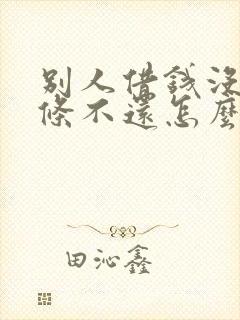 别人借钱没
條不還怎麼
田沁鑫